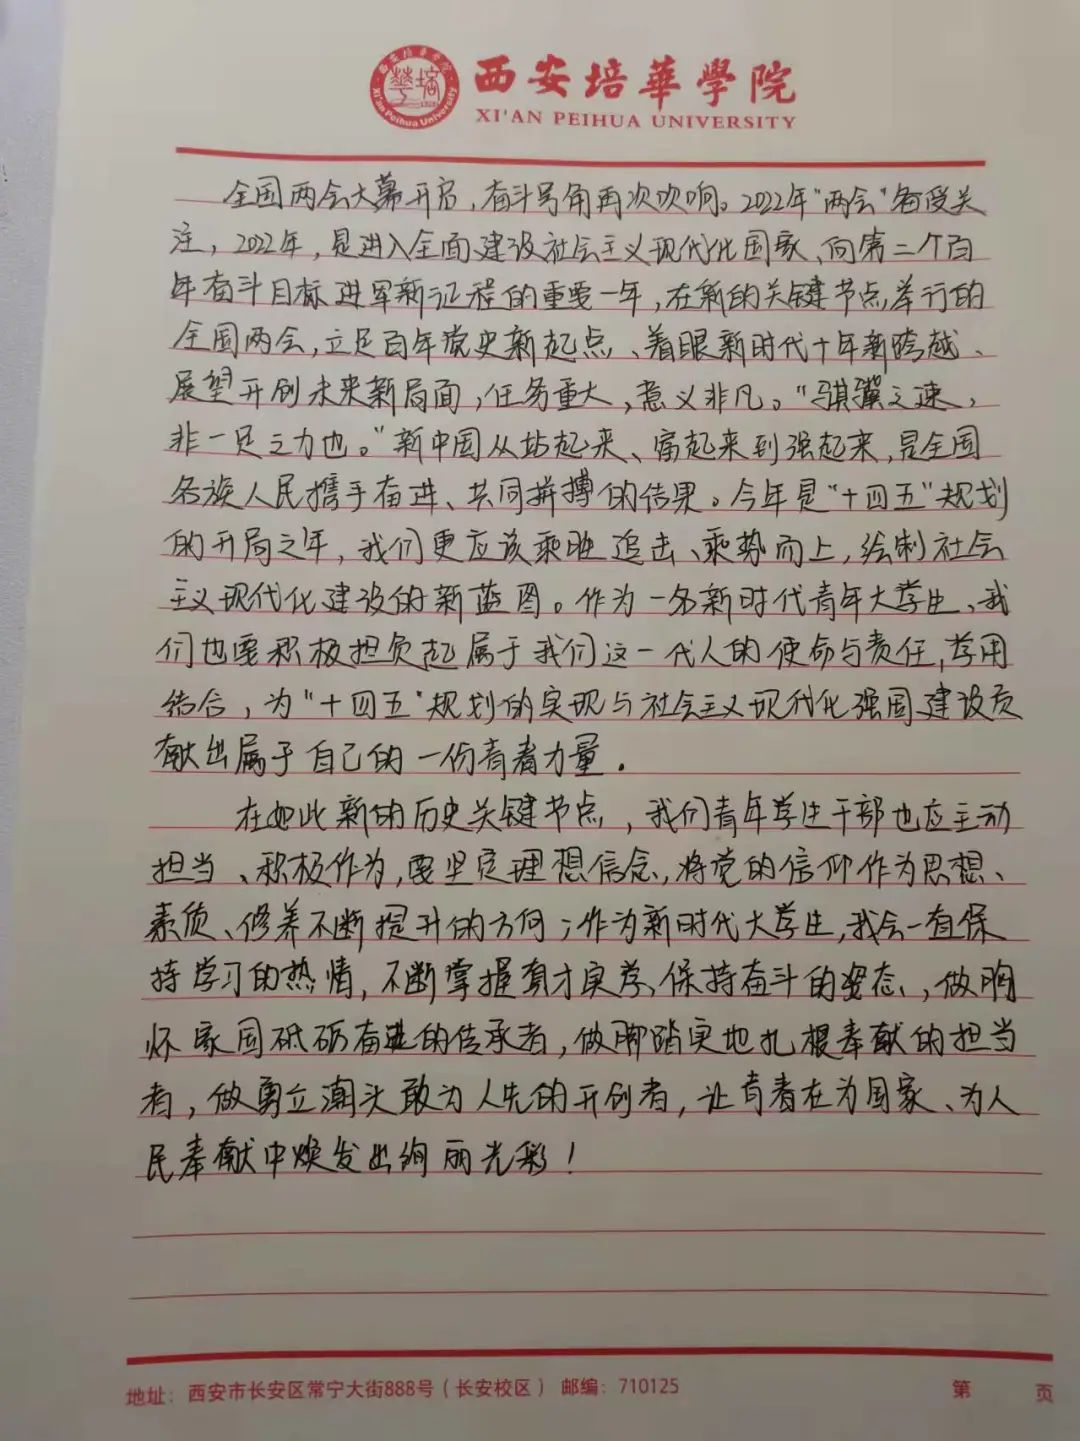 西安培華學院
XI'AN PEIHUA UNIVERSITY
全国两会大幕开启，奋斗号角再次吹响。2022年"两会"备受关
注，2022年，是进入全面建设社会主义现代化国家、向第二个百
年奋斗目标进军新征程的重要一年，在新的关键节点举行的
全国两会，立足百年党史新起点、着眼新时代十年新跨越、
展望开创未来新局面，任务重大，意义非凡。"骐骥之速，
非一足之力也。"新中国从站起来、富起来到强起来，是全国
各族人民携手奋进、共同拼搏的结果。今年是"十四五"规划
的开局之年，我们更应该乘胜追击、乘势而上，绘制社会
主义现代化建设的新蓝图。作为一名新时代青年大学生、我
们也要积极担负起属于我们这一代人的使命与责任，学用
结合，为"十四五"规划的实现与社会主义现代化强国建设贡
献出属于自己的一份青春力量.
在如此新的历史关键节点，我们青年学生干部也应主动
担当、积极作为，要坚定理想信念，将党的信仰作为思想、
素质、修养不断提升的方向；作为新时代大学生，我会一直保
持学习的热情，不断掌握真才实学，保持奋斗的姿态，做胸
怀家国砥砺奋进的传承者，做脚踏实地扎根奉献的担当
者，做勇立潮头敢为人先的开创者，让青春在为国家、为人
民奉献中焕发出绚丽光彩！
地址：西安市长安区常宁大街888号（长安校区） 邮编：710125
第 页